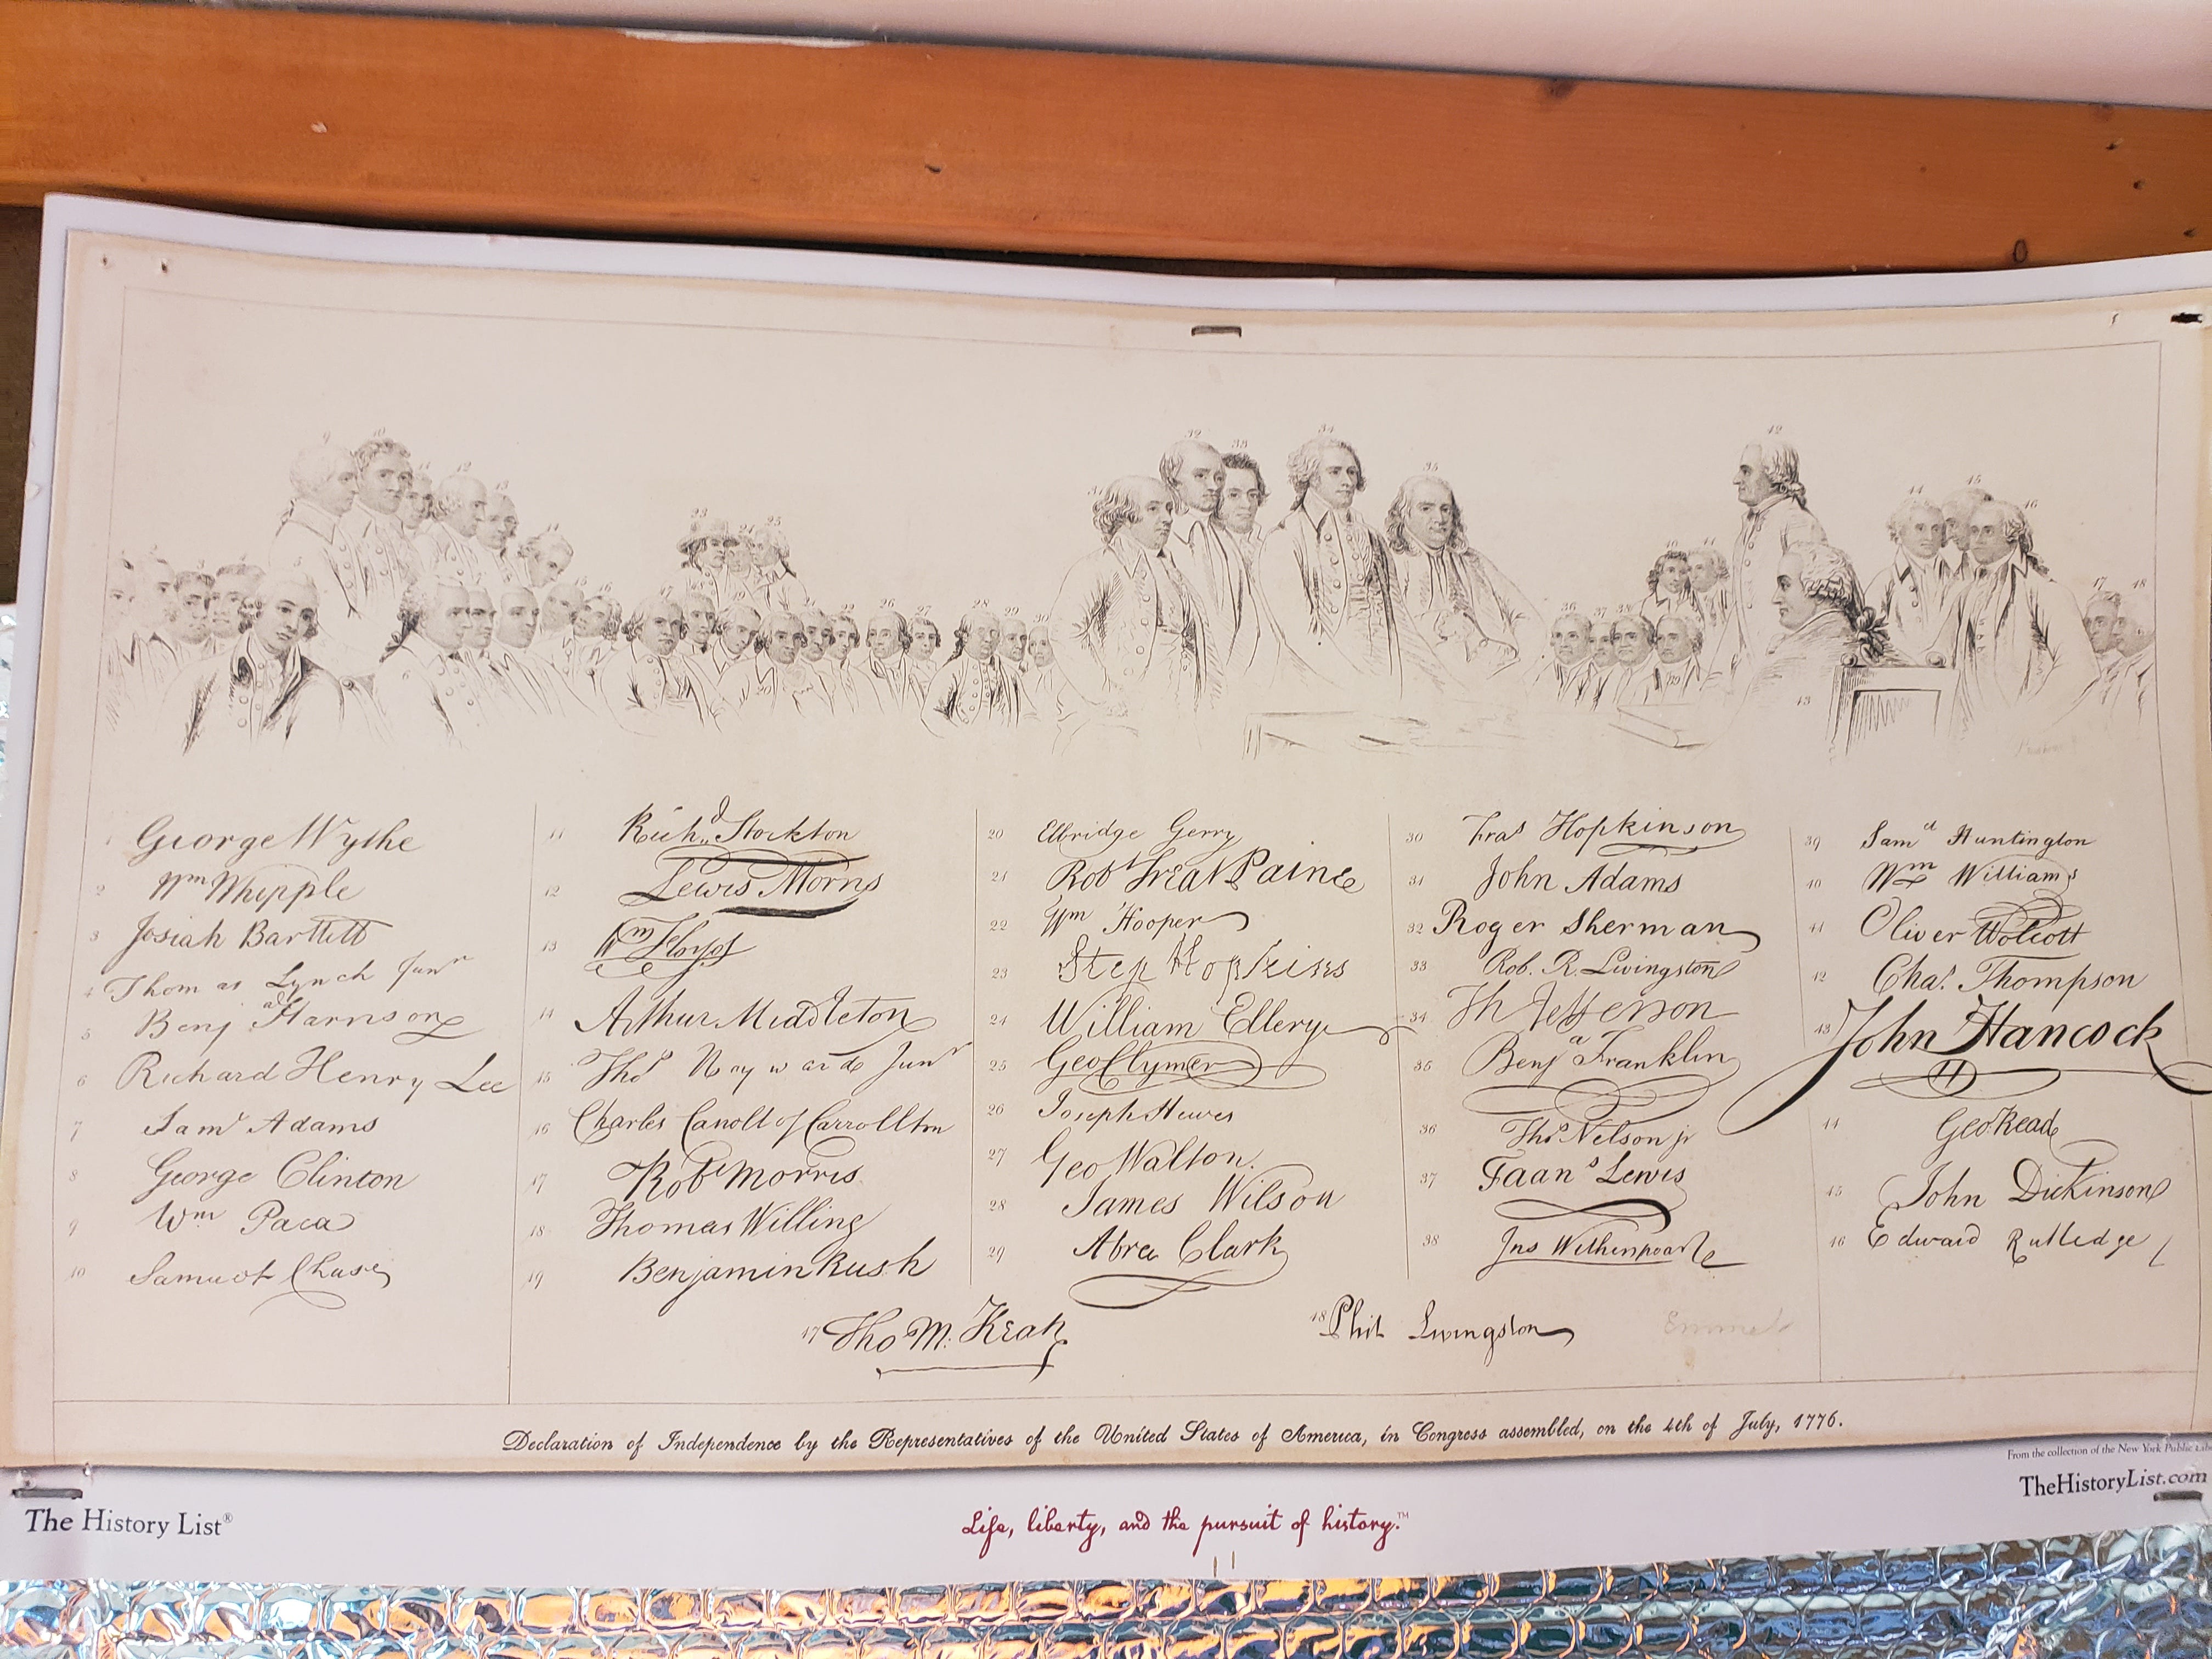 9 10 11 12 13 14
23 24 25
32 33 34 35 42
44 45 46
3 5 15 16 17 19 21 22 26 27 28 29 30
36 37 38 39 40 41 43 47 48
1 George Wythe
2 Wm Whipple
3 Josiah Bartlett
4 Thomas Lynch Junr
5 Benj Harrison
6 Richard Henry Lee
7 Saml Adams
8 George Clinton
9 Wm Paca
10 Samuel Chase
11 Richd Stockton
12 Lewis Morris
13 Wm Floyd
14 Arthur Middleton
15 Thos Heyward Junr
16 Charles Carroll of Carrollton
17 Robt Morris
18 Thomas Willing
19 Benjamin Rush
20 Elbridge Gerry
21 Robt Treat Paine
22 Wm Hooper
23 Step Hopkins
24 William Ellery
25 Geo Clymer
26 Joseph Hewes
27 Geo Walton.
28 James Wilson
29 Abra Clark
30 Fras Hopkinson
31 John Adams
32 Roger Sherman
33 Rob. R. Livingston
34 Th Jefferson
35 Benja Franklin
36 Thos Nelson jr
37 Frans Lewis
38 Jno Witherspoon
39 Samel Huntington
40 Wm Williams
41 Oliver Wolcott
42 Chas. Thompson
43 John Hancock
44 Geo Read
45 John Dickinson
46 Edward Rutledge
47 Tho M. Kean
48 Phil Livingston
Emmet
Declaration of Independence by the Representatives of the United States of America, in Congress assembled, on the 4th of July, 1776.
From the collection of the New York Public
TheHistoryList.com
The History List®
Life, liberty, and the pursuit of history.™